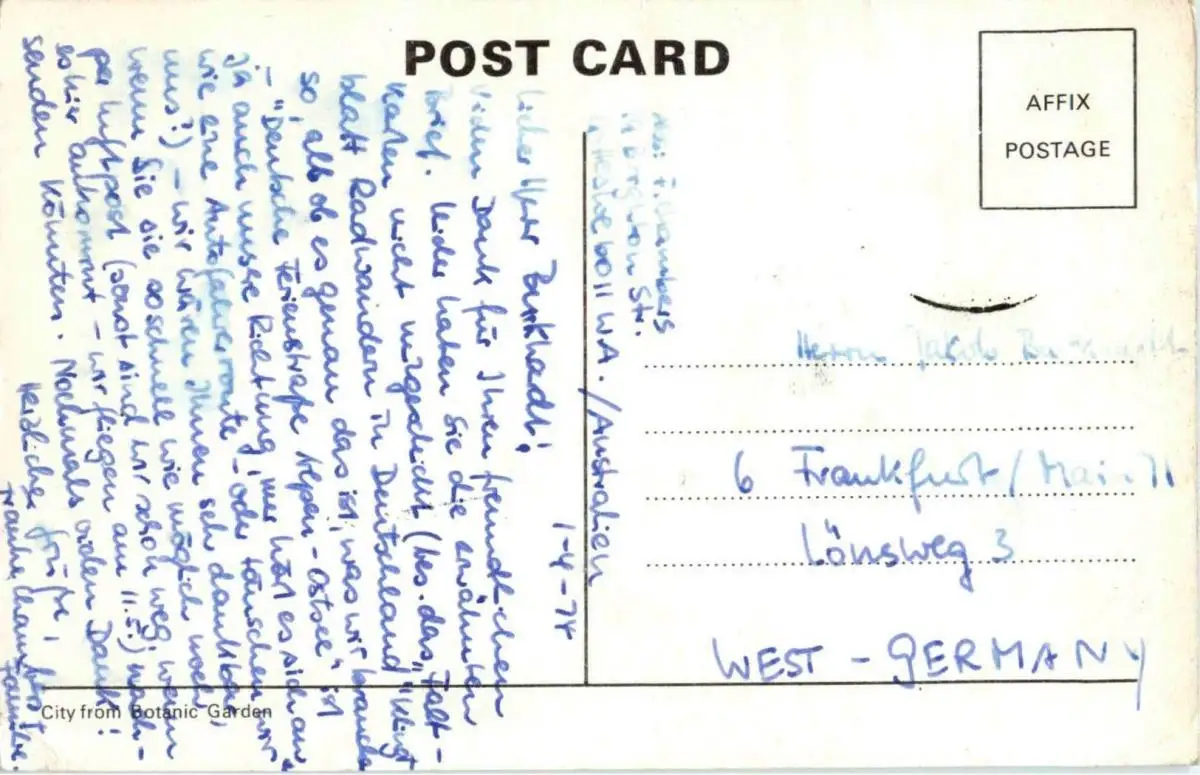 POST CARD
AFFIX
POSTAGE
1-4-74
Lieber Herr Burkhadt!
Vielen Dank für Ihren freundlichen
Brief. Leider haben Sie die erwähnten
Karten nicht mitgeschickt (bes. das "Falt-
blatt Radwandern in Deutschland" klingt
so, als ob es genau das ist, was wir brauchen
- "Deutsche Ferienstraße Alpen-Ostsee" ist
ja auch unsere Richtung, nur hört es sich an
wie eine Autofahrerroute - oder täuschen wir
uns?) - wir wären Ihnen sehr dankbar,
wenn Sie sie so schnell wie möglich noch
per Luftpost (sonst sind wir schon weg, wenn
es hier ankommt - wir fliegen am 11.5.) nach-
senden könnten. Nochmals vielen Dank!
Herzliche Grüße, Ihre
Familie.
Abs: F. Chambers
Str.
WA. / Australien
Herrn Jakob
6 Frankfurt / Main 71
Lönsweg 3
WEST - GERMANY
City from Botanic Garden